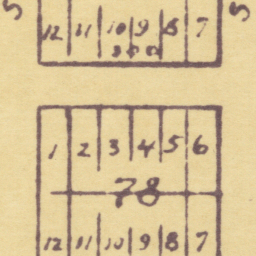 12 11 10 9 8 7
300
1 2 3 4 5 6
78
12 11 10 9 8 7